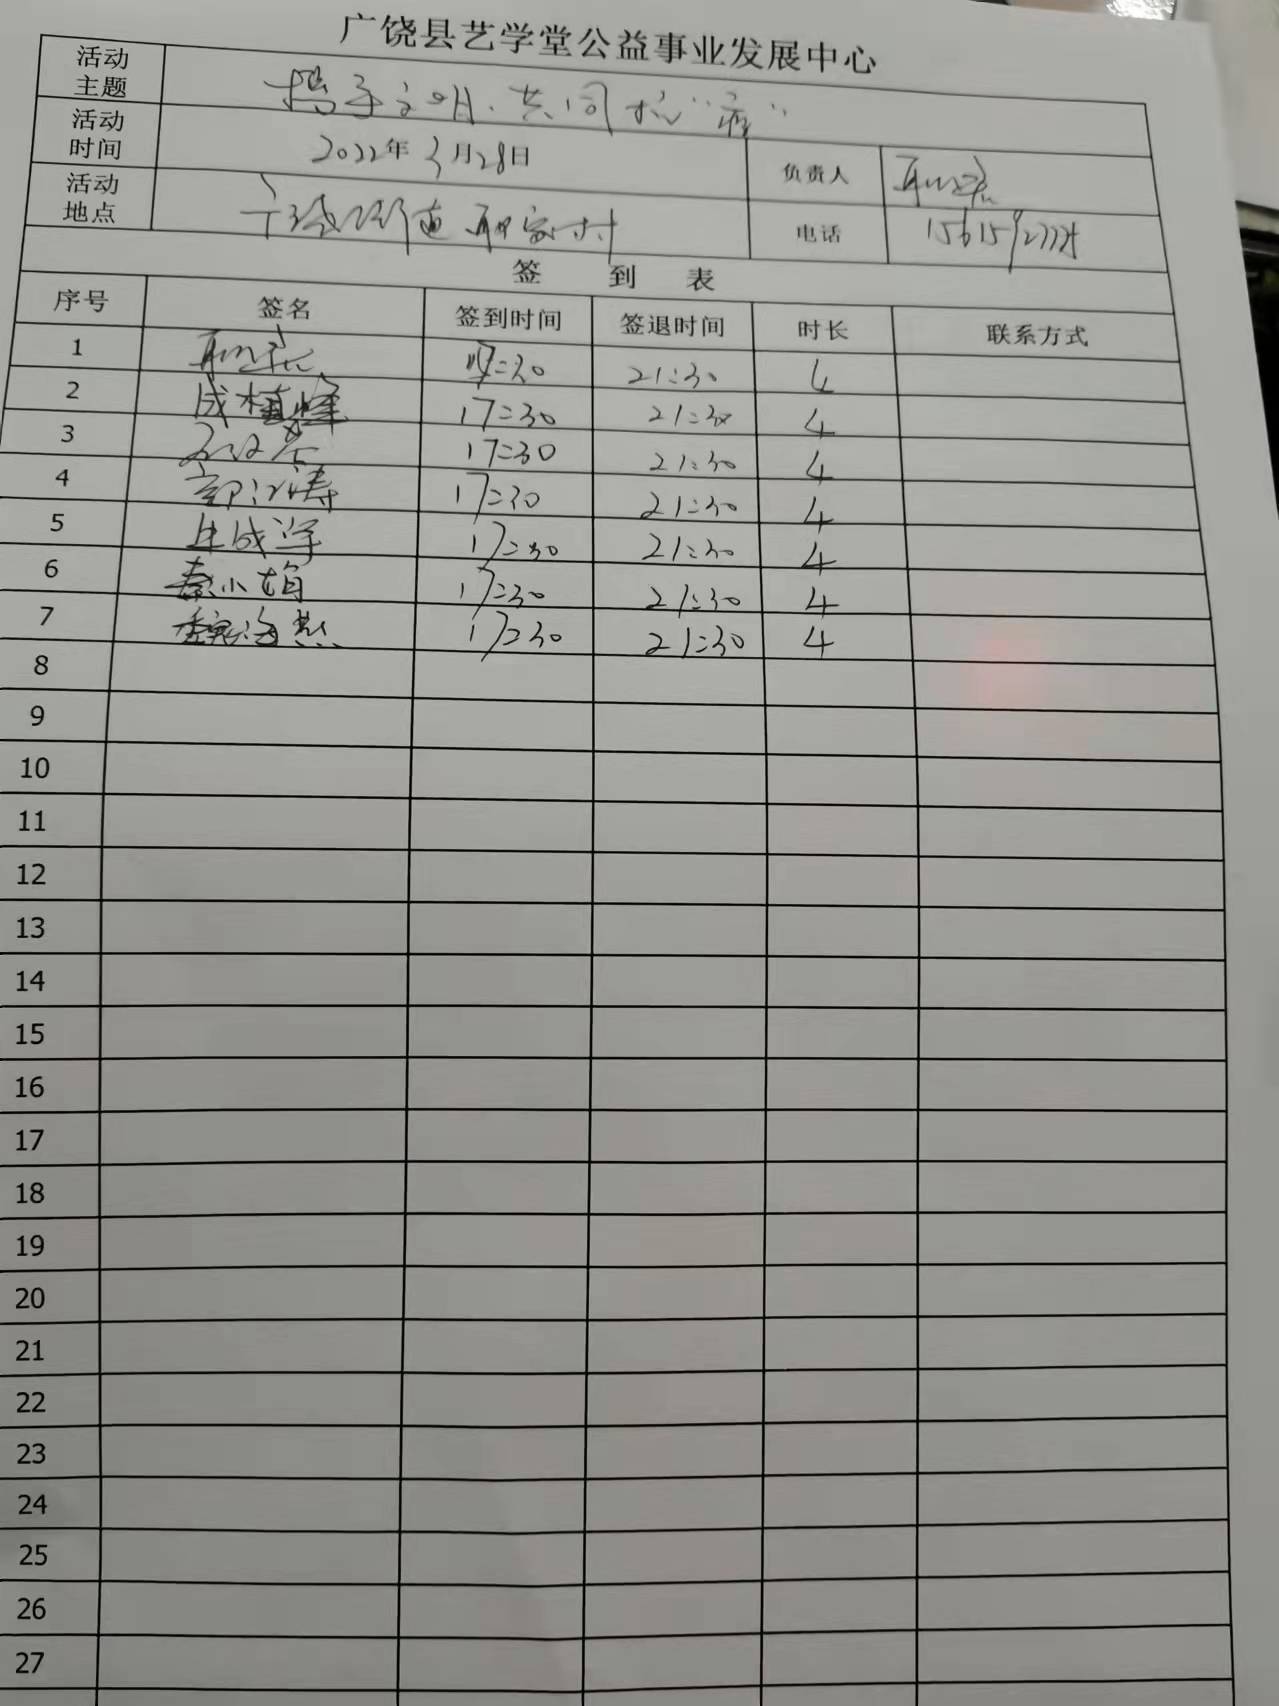 广饶县艺学堂公益事业发展中心
活动主题 携手文明、共同抗"疫"
活动时间 2022年3月28日 负责人
活动地点 街道 家村 电话
签 到 表
序号 签名 签到时间 签退时间 时长 联系方式
1 17:30 21:30 4
2 成植峰 17:30 21:30 4
3 17:30 21:30 4
4 17:30 21:30 4
5 生成学 17:30 21:30 4
6 秦小娟 17:30 21:30 4
7 魏海燕 17:30 21:30 4
8
9
10
11
12
13
14
15
16
17
18
19
20
21
22
23
24
25
26
27